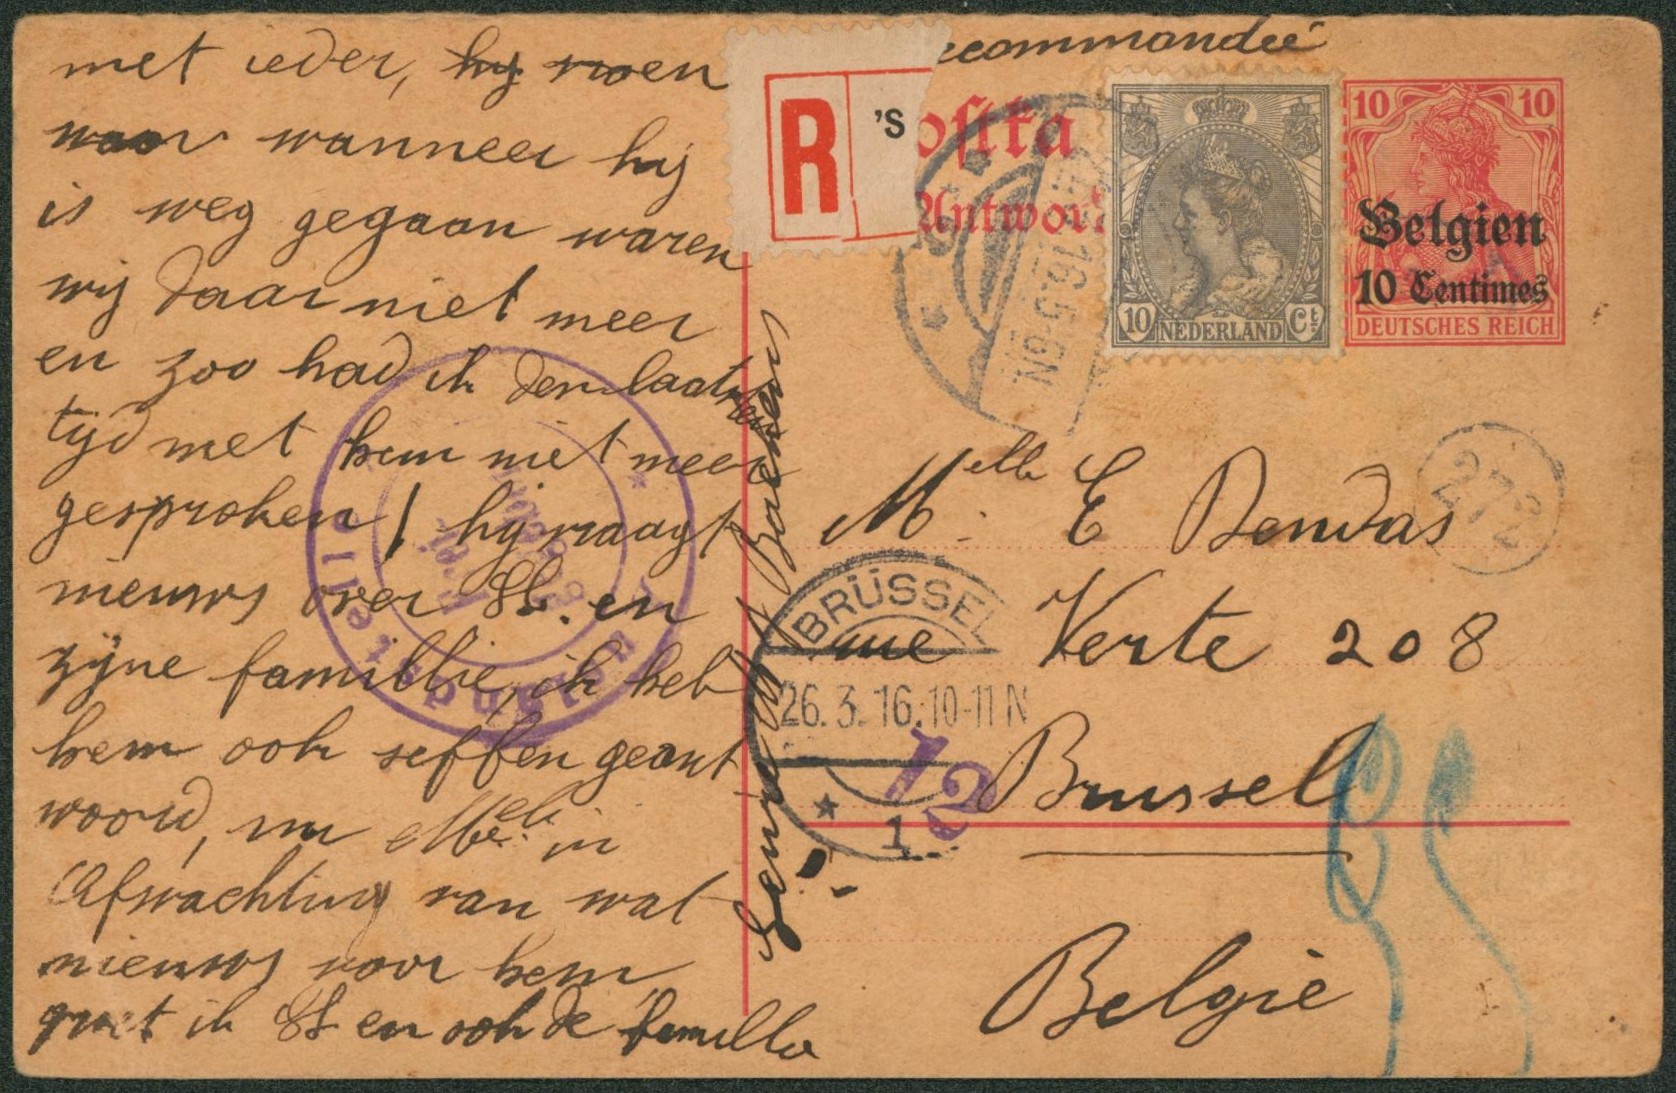 met ieder, hij
wanneer hij
is weg gegaan waren
wij daar niet meer
en zoo had ik den laatsten
tijd met hem niet meer
gesproken / hij vraagt
nieuws over en
zijne famillie, ik heb
hem ook seffen geant
woord, nu in
Afwachting van wat
nieuws voor hem
groet ik en ook de familla
R
'S
ecommandée
ostka
Antwort
10 NEDERLAND Ct
10 10
Belgien
10 Centimes
DEUTSCHES REICH
16.5-6N
272
Melle E Bendas
rue Verte 208
Brussel
België
BRÜSSEL
26.3.16.10-11N
1
12
Auslandsstelle